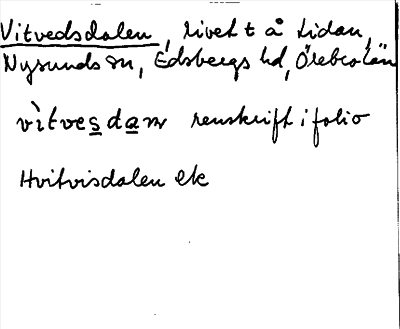 Vitvedsdalen, rivet t å Lidan,
Nysunds sn, Edsbergs hd, Örebro län
vìtvesdam renskrift i folio
Hvitvisdalen ek